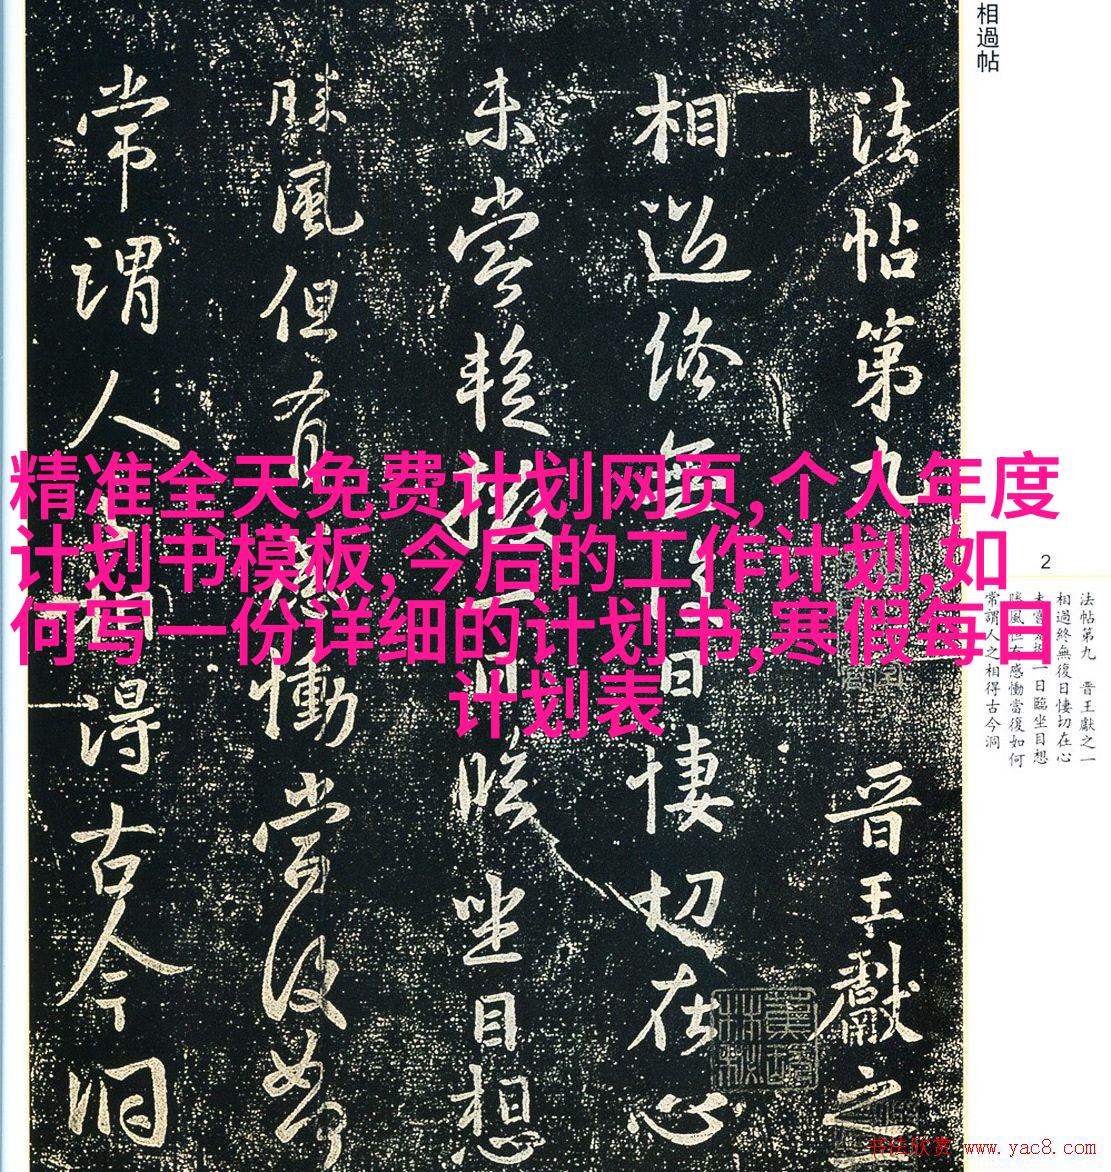 相過帖
法帖第九 晉王獻之
相過終無復日悽切在心
未嘗暫掇一日臨坐目想
勝風但有感慟當復如何
常謂人之相得古今洞
精准全天免费计划网页,个人年度
计划书模板,今后的工作计划,如
何写一份详细的计划书,寒假每日
计划表
2
法帖第九 晉王獻之一
相過終無復日悽切在心
未嘗掇一日臨坐目想
勝風但有感慟當復如何
常謂人之相得古今洞
书法欣赏 www.yac8.com